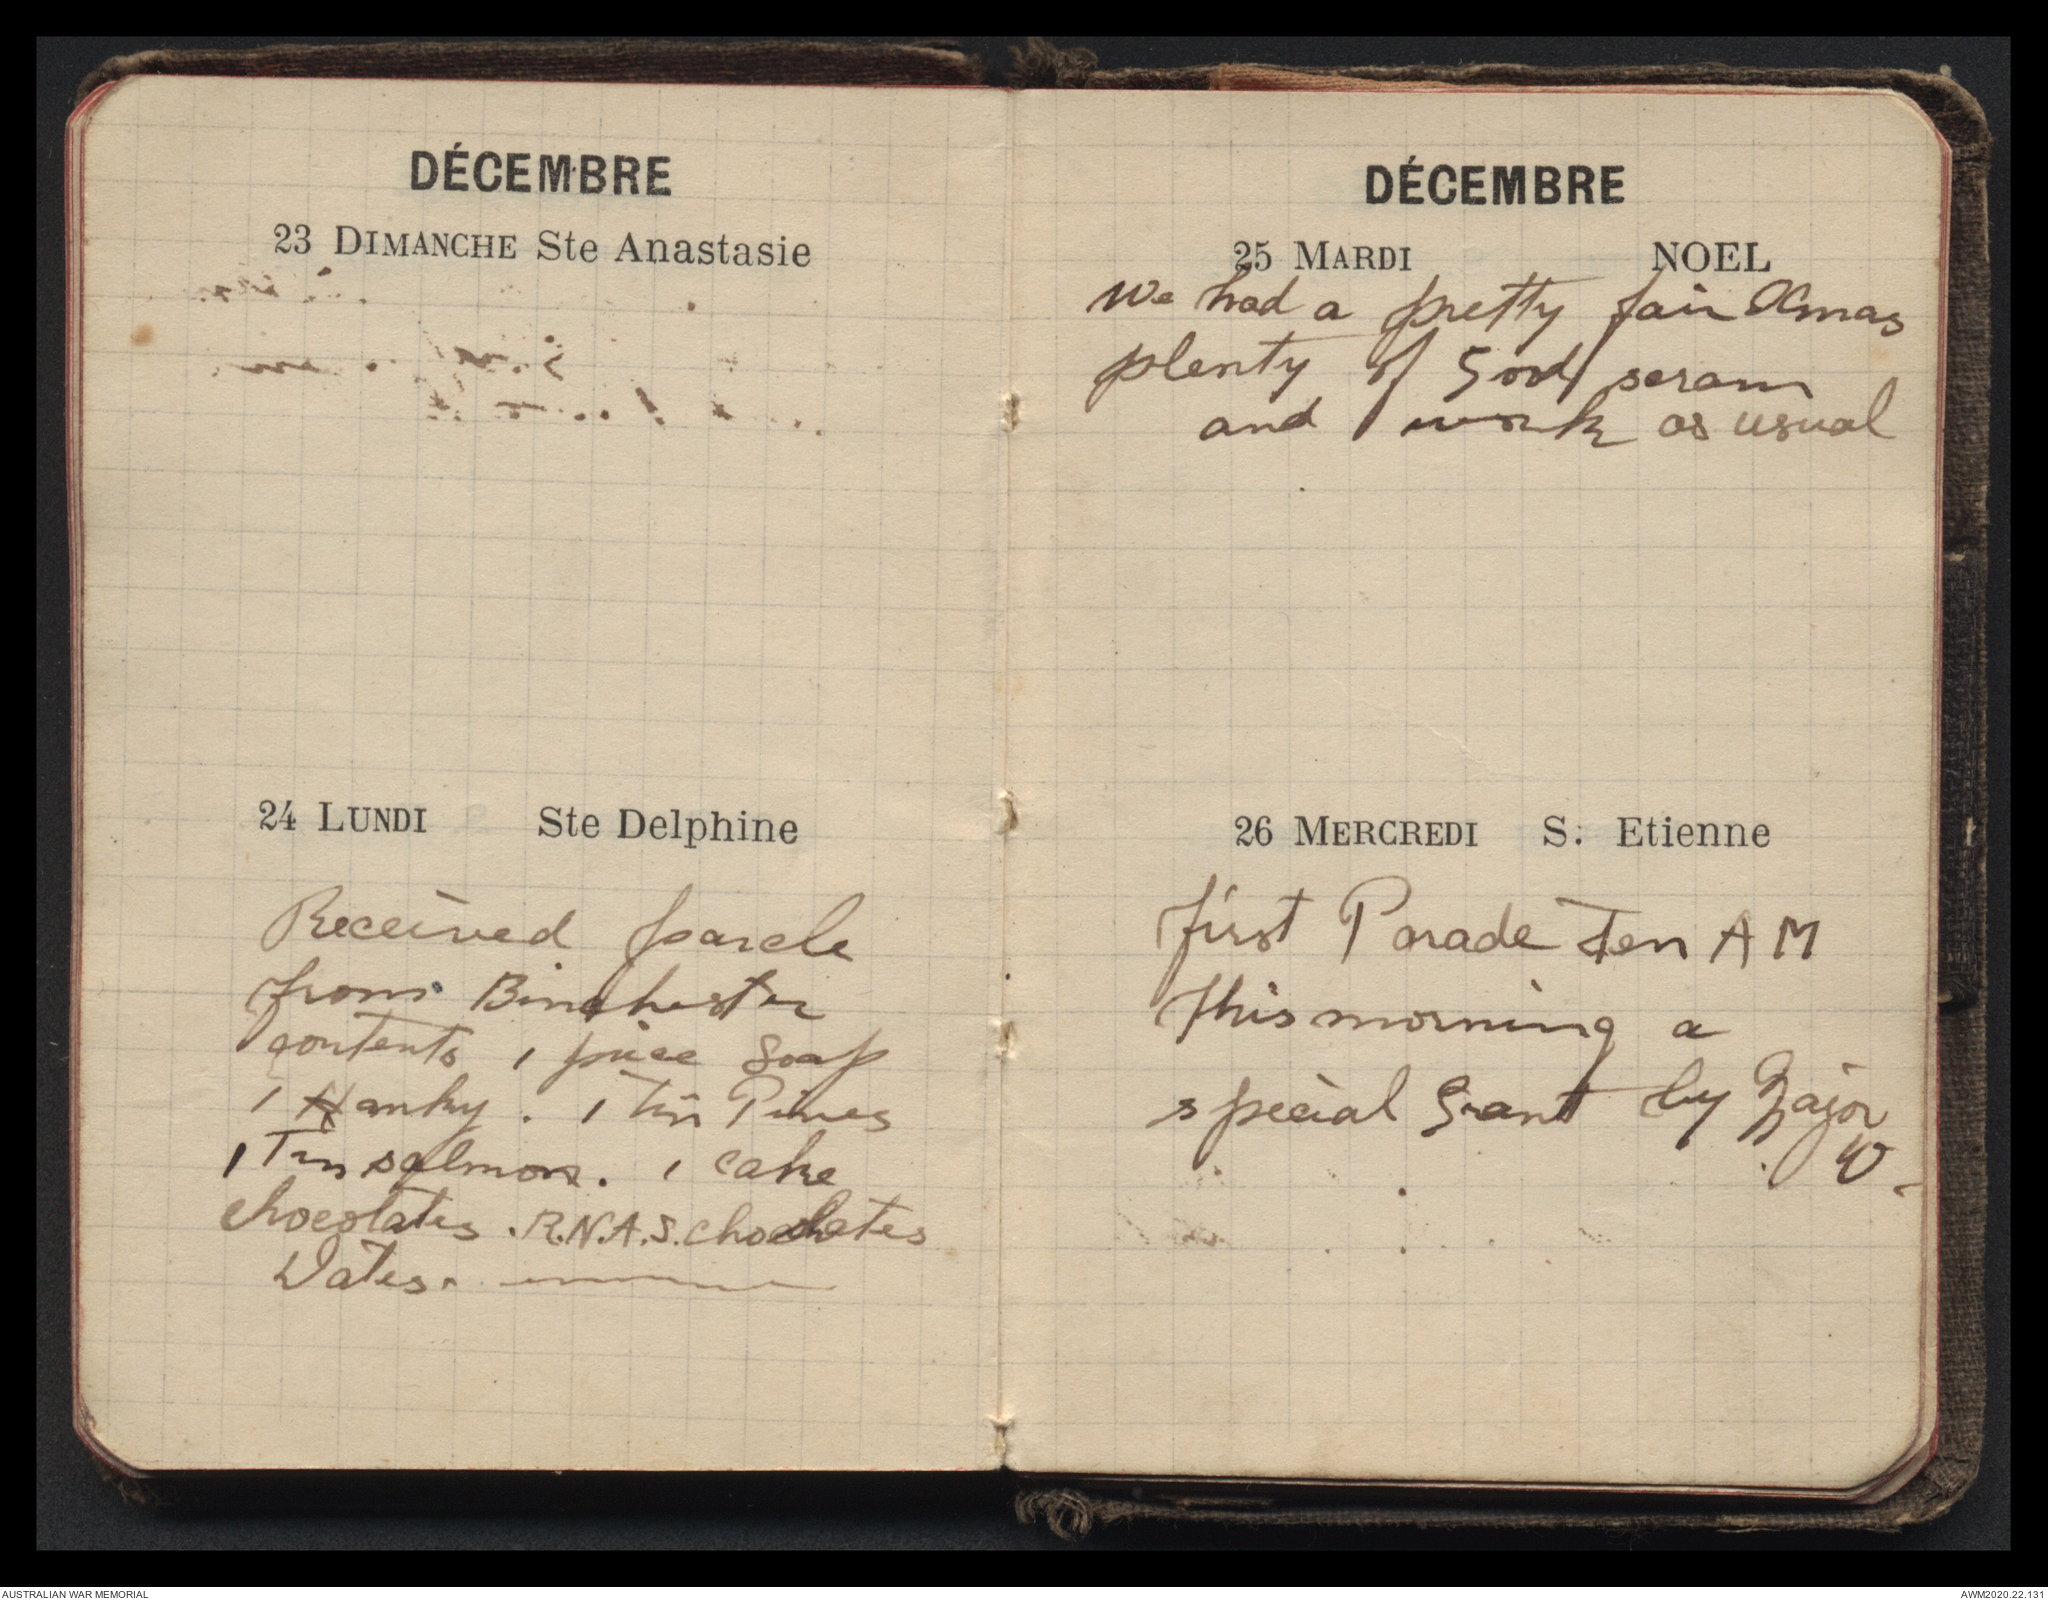 DÉCEMBRE
23 DIMANCHE Ste Anastasie
24 LUNDI Ste Delphine
Received parcle
from Binchester
contents 1 piece Soap
1 Hanky. 1 Tin Pines
1 Tin salmon. 1 cake
chocolates. R.N.A.S. chocolates
Dates.
DÉCEMBRE
25 MARDI NOEL
We had a pretty fair Xmas
plenty of Good scram
and work as usual
26 MERCREDI S. Etienne
first Parade Ten AM
This morning a
special Grant by Major
W
AUSTRALIAN WAR MEMORIAL
AWM2020.22.131